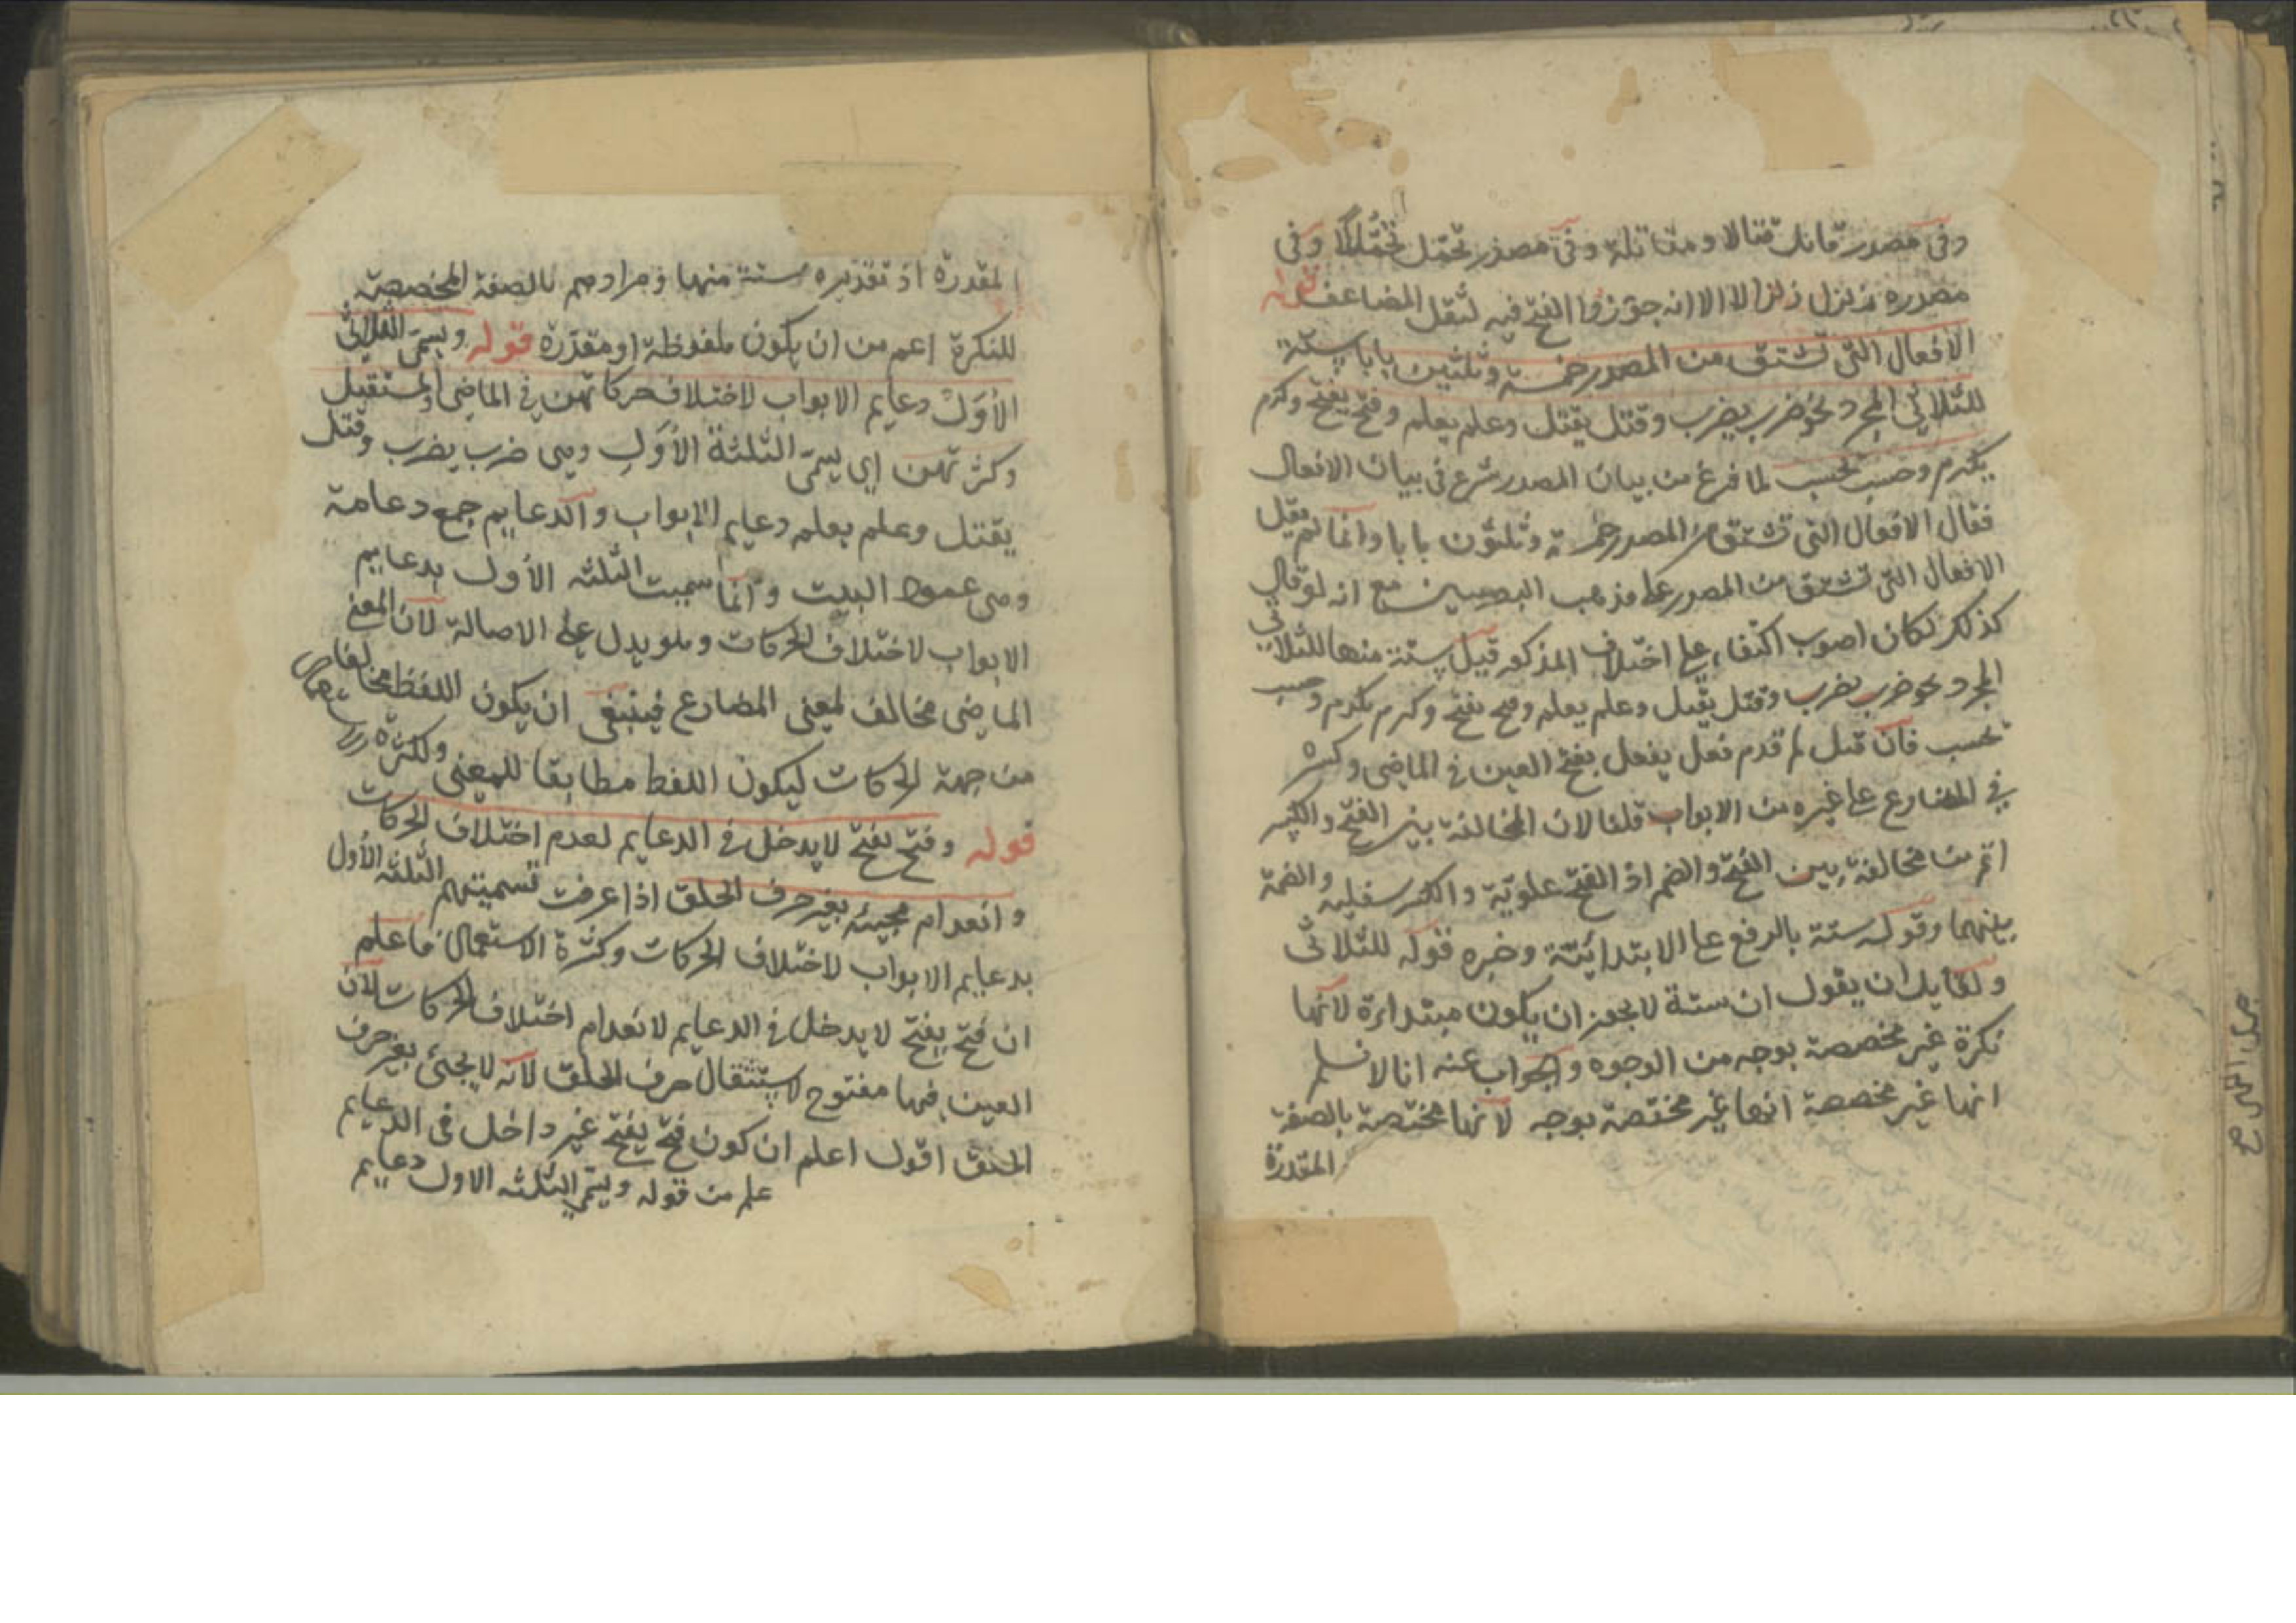 وفى مصدر قاتل قتالا ومقاتلة وفى مصدر تحمّل تحمّلا وفى
مصدره زلزل زلزالا الا انه جوّزوا الفتح فيه لثقل المضاعف قوله
الافعال التى تشتق من المصدر خمسة وثلثين بابا ستة
للثلاثى المجرد نحو ضرب يضرب وقتل يقتل وعلم يعلم وفتح يفتح وكرم
يكرم وحسب يحسب لما فرغ من بيان المصدر شرع فى بيان الافعال
فقال الافعال التى تشتق من المصدر خمسة وثلثون بابا وانما لم يقل
الافعال التى تشتق من المصدر على مذهب البصريين مع انه لو قال
كذلك لكان اصوب اكتفاء على اختلاف المذكور قيل ستة منها للثلاثى
المجرد نحو ضرب يضرب وقتل يقتل وعلم يعلم وفتح يفتح وكرم يكرم وحسب
يحسب فان قيل لم قدم فعل يفعل بفتح العين فى الماضى وكسره
فى المضارع على غيره من الابواب قلنا لان المخالفة بين الفتح والكسر
اتم من مخالفة بين الفتح والضم اذ الفتح علويّة والكسر سفلية والضمة
بينهما وقوله ستة بالرفع على الابتدائيّة وخبره قوله للثلاثى
ولقايل ان يقول ان ستة لا يجوز ان يكون مبتداءة لانها
نكرة غير مخصصة بوجه من الوجوه والجواب عنه انا لا نسلم
انها غير مخصصة انها غير مختصة بوجه لانها مختصة بالصفة
المقدرة
المقدرة اذ تقديره ستة منها ومرادهم بالصفة المخصصة
للنكرة اعم من ان يكون ملفوظة او مقدّرة قوله ويسمّى الثلاثى
الأوَلْ دعايم الابواب لاختلاف حركاتهن فى الماضى والمستقبل
وكثرتهن اى يسمّى الثلثة الأوَل وهى ضرب يضرب وقتل
يقتل وعلم يعلم دعايم الابواب والدعايم جمع دعامة
وهى عمود البيت وانّما سميت الثلثه الأول بدعايم
الابواب لاختلاف الحركات وهو يدل على الاصالة لان المعنى
الماضى مخالف لمعنى المضارع فينبغى ان يكون اللفظ مخالفا
من جهة الحركات ليكون اللفظ مطابقا للمعنى ولكثرة
قوله وفتح يفتح لا يدخل فى الدعايم لعدم اختلاف الحركات
وانعدام مجيئه بغير حرف الحلق اذا عرفت تسميتهم الثلثة الأول
بدعايم الابواب لاختلاف الحركات وكثرة الاستعمال فاعلم
ان فتح يفتح لا يدخل فى الدعايم لانعدام اختلاف الحركات لان
العين فيها مفتوح لاستثقال حرف الحلق لانه لا يجئ بغير حرف
الحلق اقول اعلم ان كون فتح يفتح غير داخل فى الدعايم
علم من قوله ويسمّى الثلثه الاول دعايم